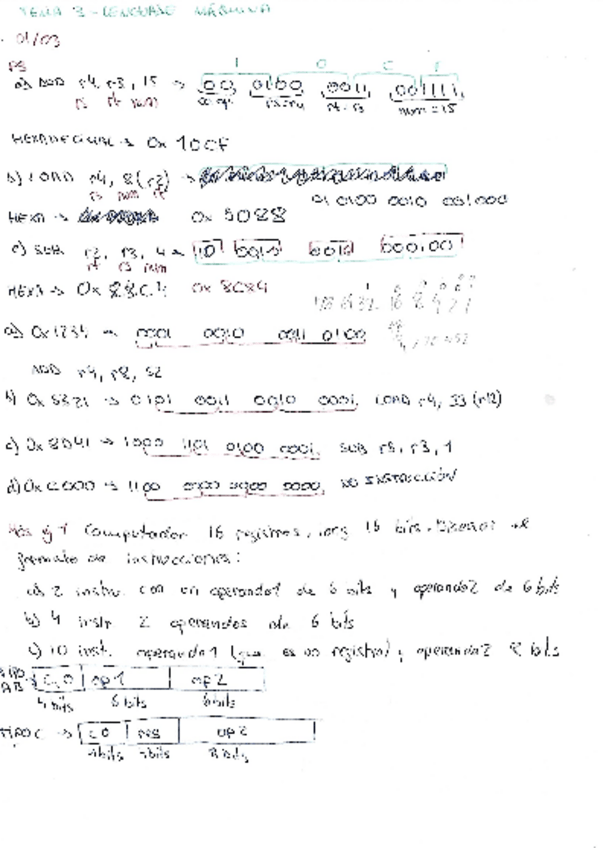 TEMA 3 - LENGUAJE MÁQUINA
01/03
a) ADD r4, r3, 15 → 00 0100 0011 001111
rs rt num
rs=r4 rt=r3 num=15
HEXADECIMAL → 0x 10CF
b) LOAD r4, 8(r2) →
rs num rt
01 0100 0010 001000
HEXA → 0x 5088
c) SUB r2, r3, 4 → 10 0010 000100
rt rs num
HEXA → 0x 88C4 0x 8C84
a) 0x1234 → 0001 0010 0011 0100
ADD r4, r8, 52
b) 0x5321 → 0101 0011 0010 0001, LOAD r4, 33 (r12)
c) 0x8D41 → 1000 1101 0100 0001, SUB r5, r3, 1
d) 0xC000 → 1100 0000 0000 0000, NO INSTRUCCIÓN
Computador 16 registros, 16 bits. el
formato de instrucciones:
a) 2 instr. con un operando1 de 6 bits y operando2 de 6 bits
b) 4 instr 2 operandos de 6 bits
c) 10 inst. operando1 (que es un registro) y operando2 8 bits
C.O op1 op2
4 bits 6 bits 6 bits
TIPO C → CO REG op2
4 bits 4 bits 8 bits